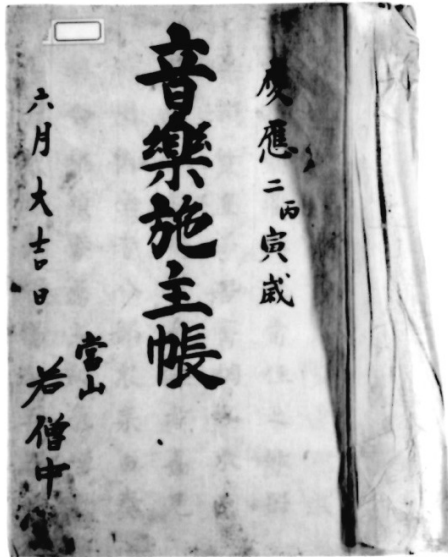 慶應二丙寅歳
音樂施主帳
六月大吉日
當山
若僧中